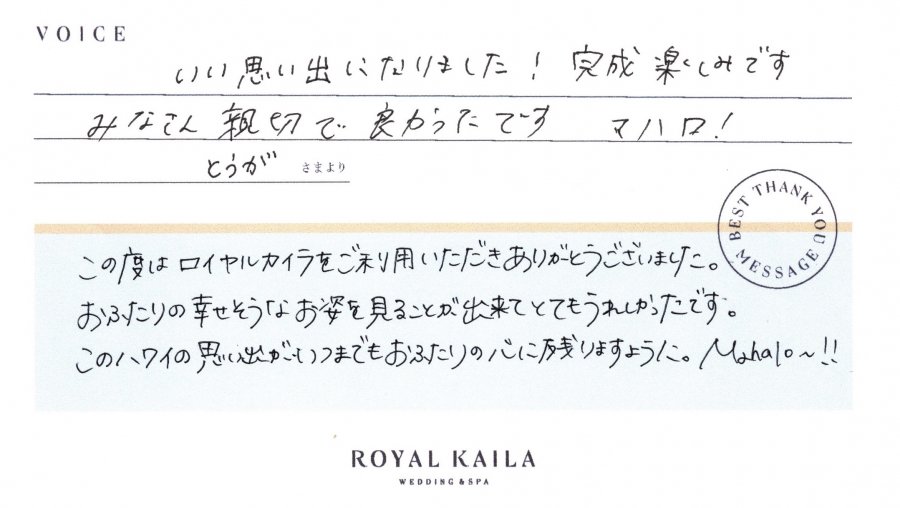 VOICE
いい思い出になりました! 完成楽しみです
みなさん 親切で 良かったです マハロ!
とうが さまより
BEST THANK YOU MESSAGE
この度はロイヤルカイラをご利用いただきありがとうございました。
おふたりの幸せそうなお姿を見ることが出来てとてもうれしかったです。
このハワイの思い出がいつまでもおふたりの心に残りますように。Mahalo~!!
ROYAL KAILA
WEDDING & SPA